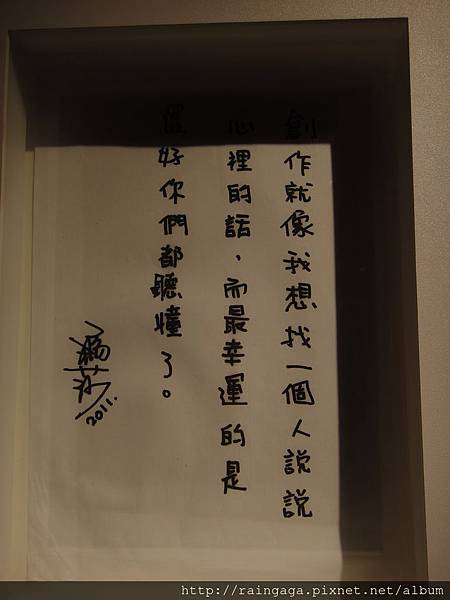 創作就像我想找一個人說說
心裡的話，而最幸運的是
還好你們都聽懂了。
2011.
http://raingaga.pixnet.net/album